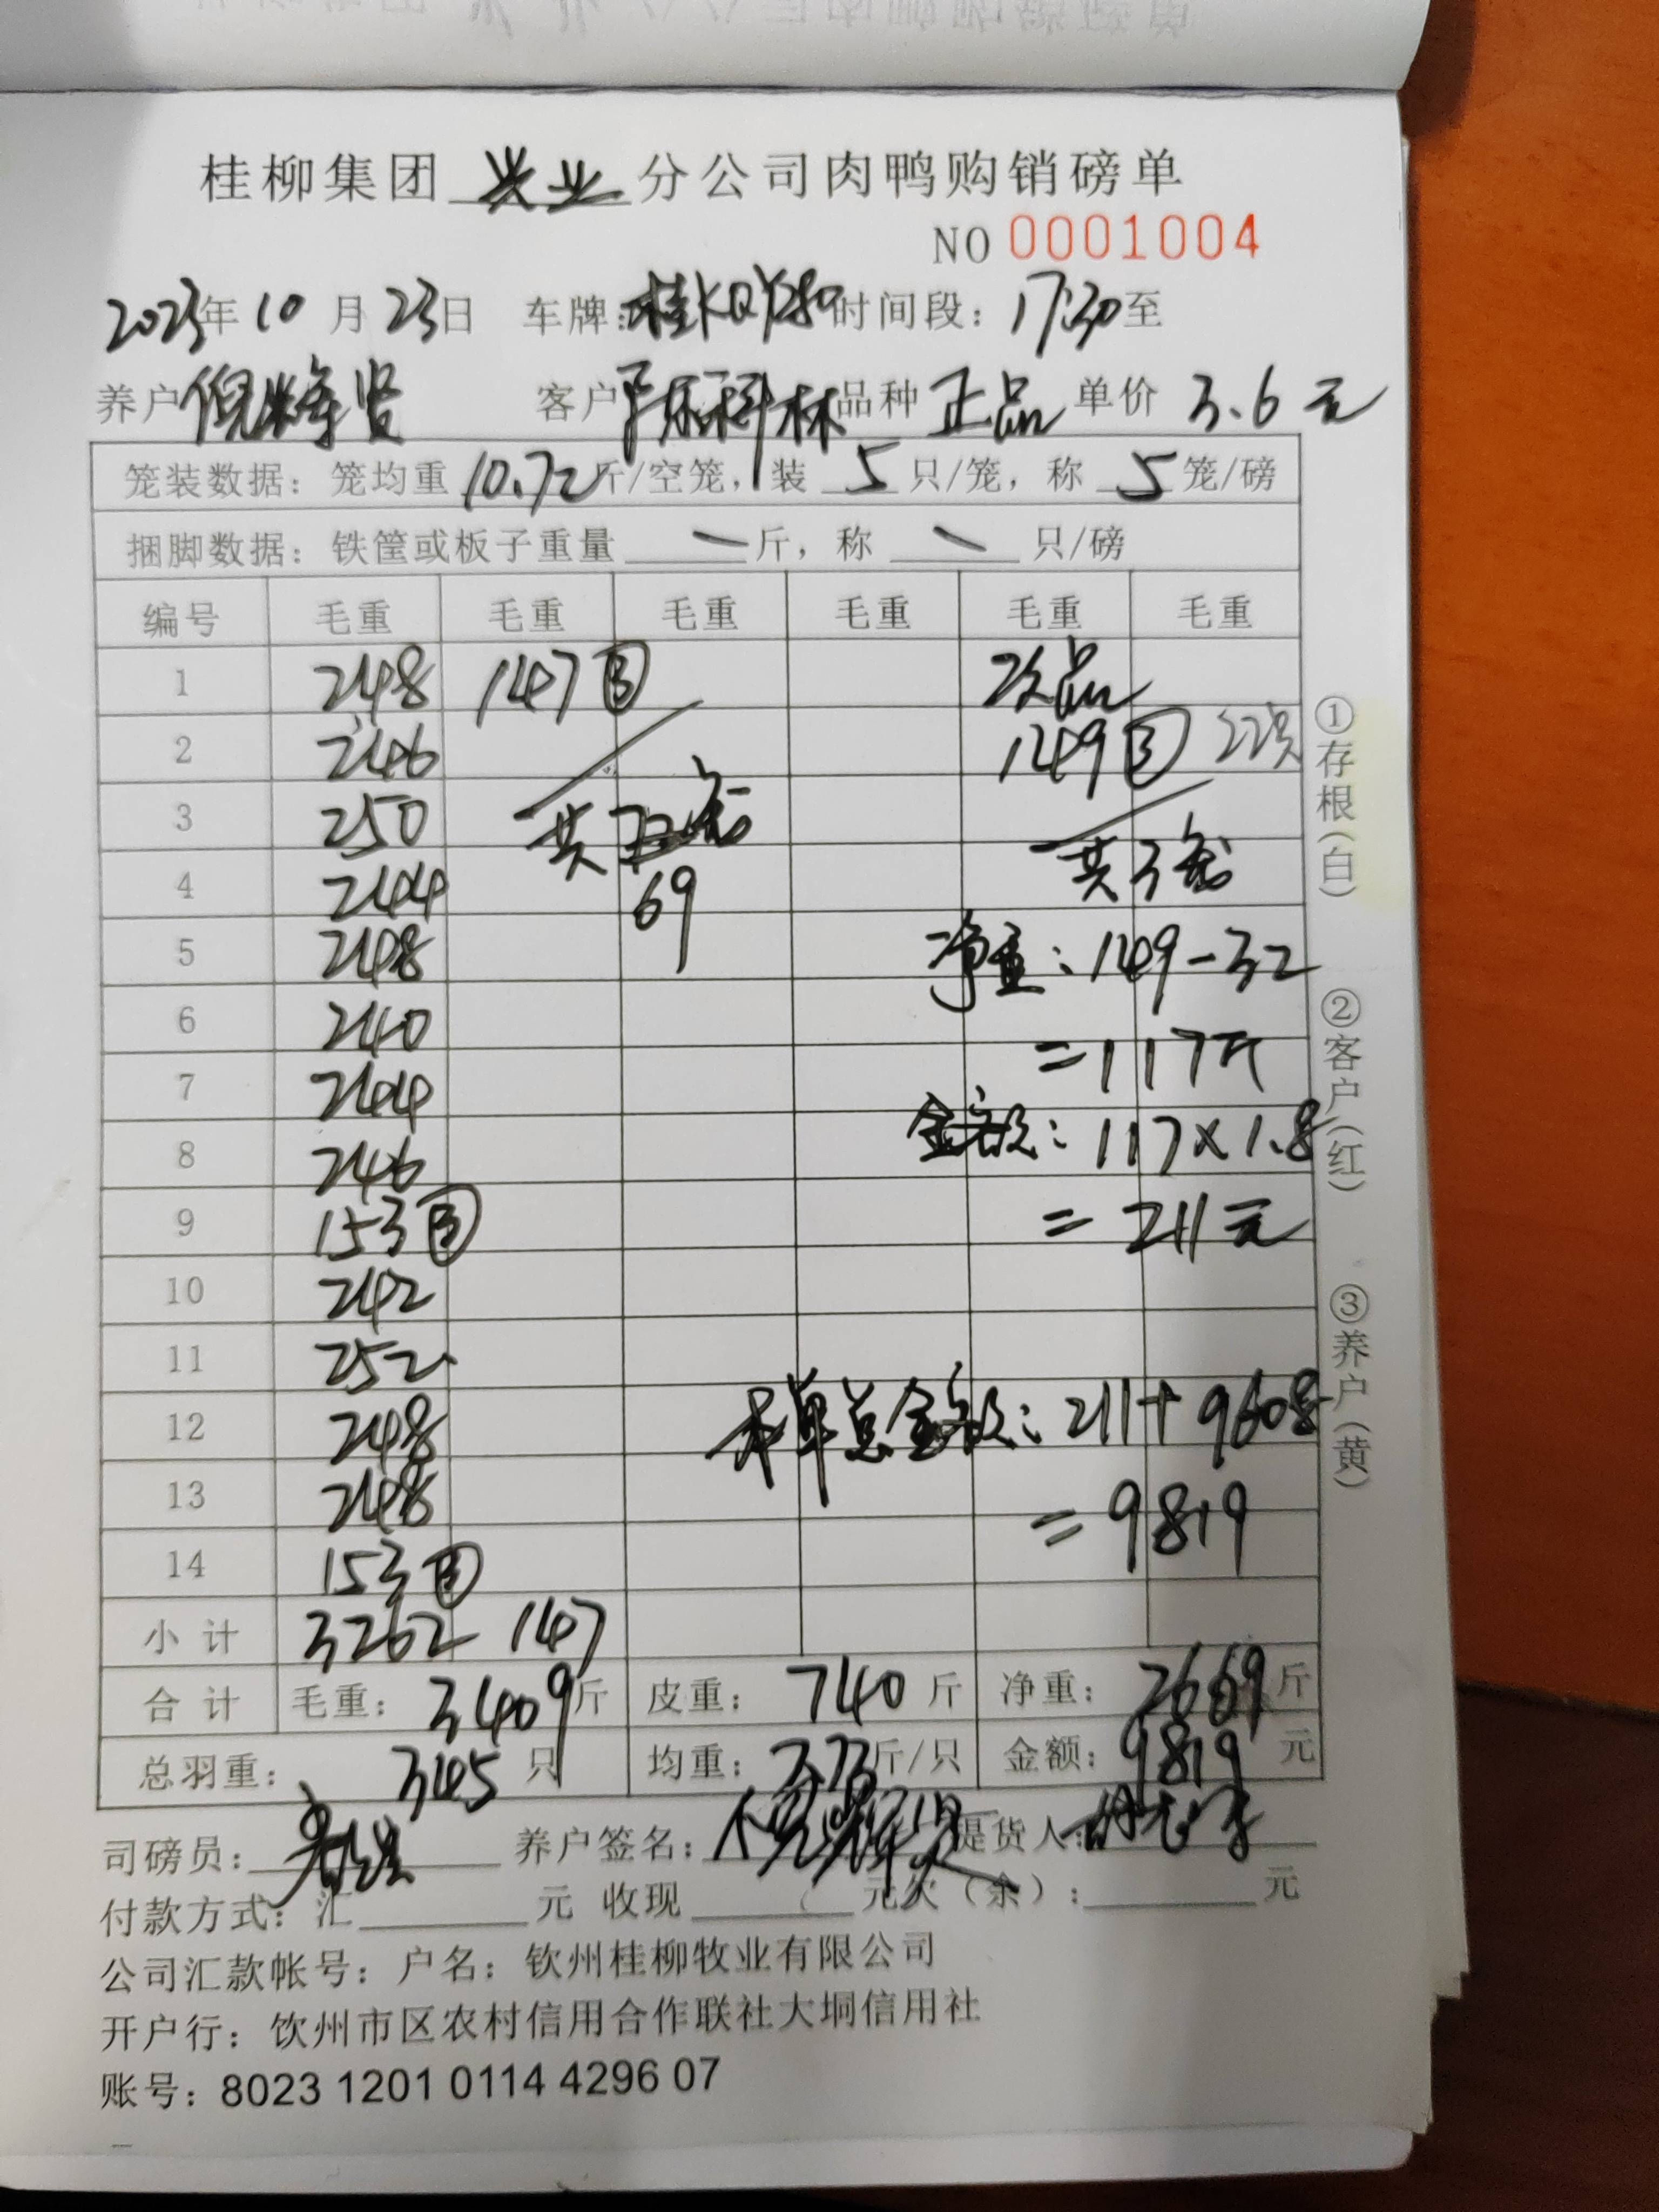 桂柳集团 兴业 分公司肉鸭购销磅单
NO 0001004
2023年10月23日 车牌: 时间段: 17:30至
养户 倪辉贤 客户 科林 品种 正品 单价 3.6元
笼装数据: 笼均重 10.72斤/空笼, 装 5 只/笼, 称 5 笼/磅
捆脚数据: 铁筐或板子重量 — 斤, 称 — 只/磅
编号 毛重 毛重 毛重 毛重 毛重 毛重
1 248 147③ 次品
2 246 149③ 22只
3 250 共
4 244 69 共3笼
5 248 净重: 149-32
6 240 =117斤
7 244 金额: 117×1.8
8 246
9 153③ =211元
10 242
11 252
12 248 本单总金额: 211+9608
13 248 =9819
14 153③
小计 3262 147
合计 毛重: 3409斤 皮重: 740斤 净重: 2669斤
总羽重: 345 只 均重: 7.73斤/只 金额: 9819元
司磅员: 养户签名: 倪辉贤 提货人:
付款方式: 汇 元 收现 元欠(余): 元
公司汇款帐号: 户名: 钦州桂柳牧业有限公司
开户行: 饮州市区农村信用合作联社大垌信用社
账号: 8023 1201 0114 4296 07
①存根(白)
②客户(红)
③养户(黄)